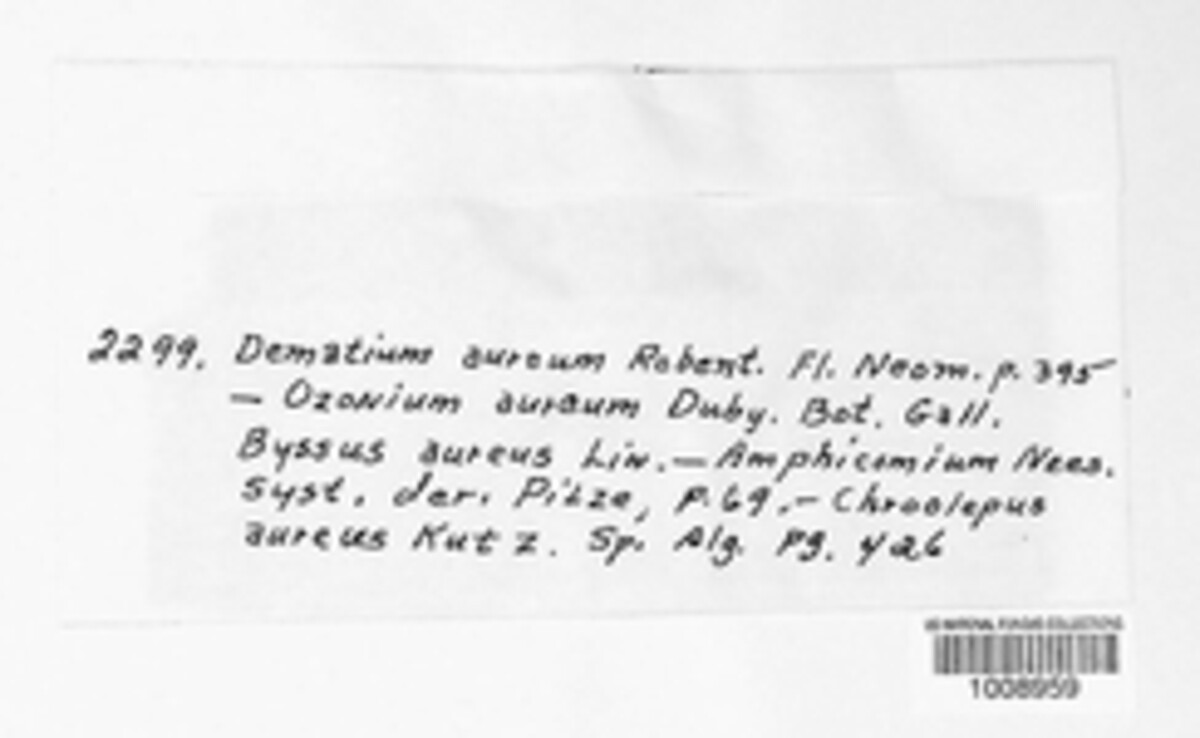 2299. Dematium aureum Rabent. Fl. Neom. p. 395
— Ozonium auraum Duby. Bot. Gall.
Byssus aureus Lin. — Amphicomium Nees.
Syst. der. Pitze, p. 69. — Chroolepus
aureus Kutz. Sp. Alg. pg. 426
US NATIONAL FUNGUS COLLECTIONS
1008959